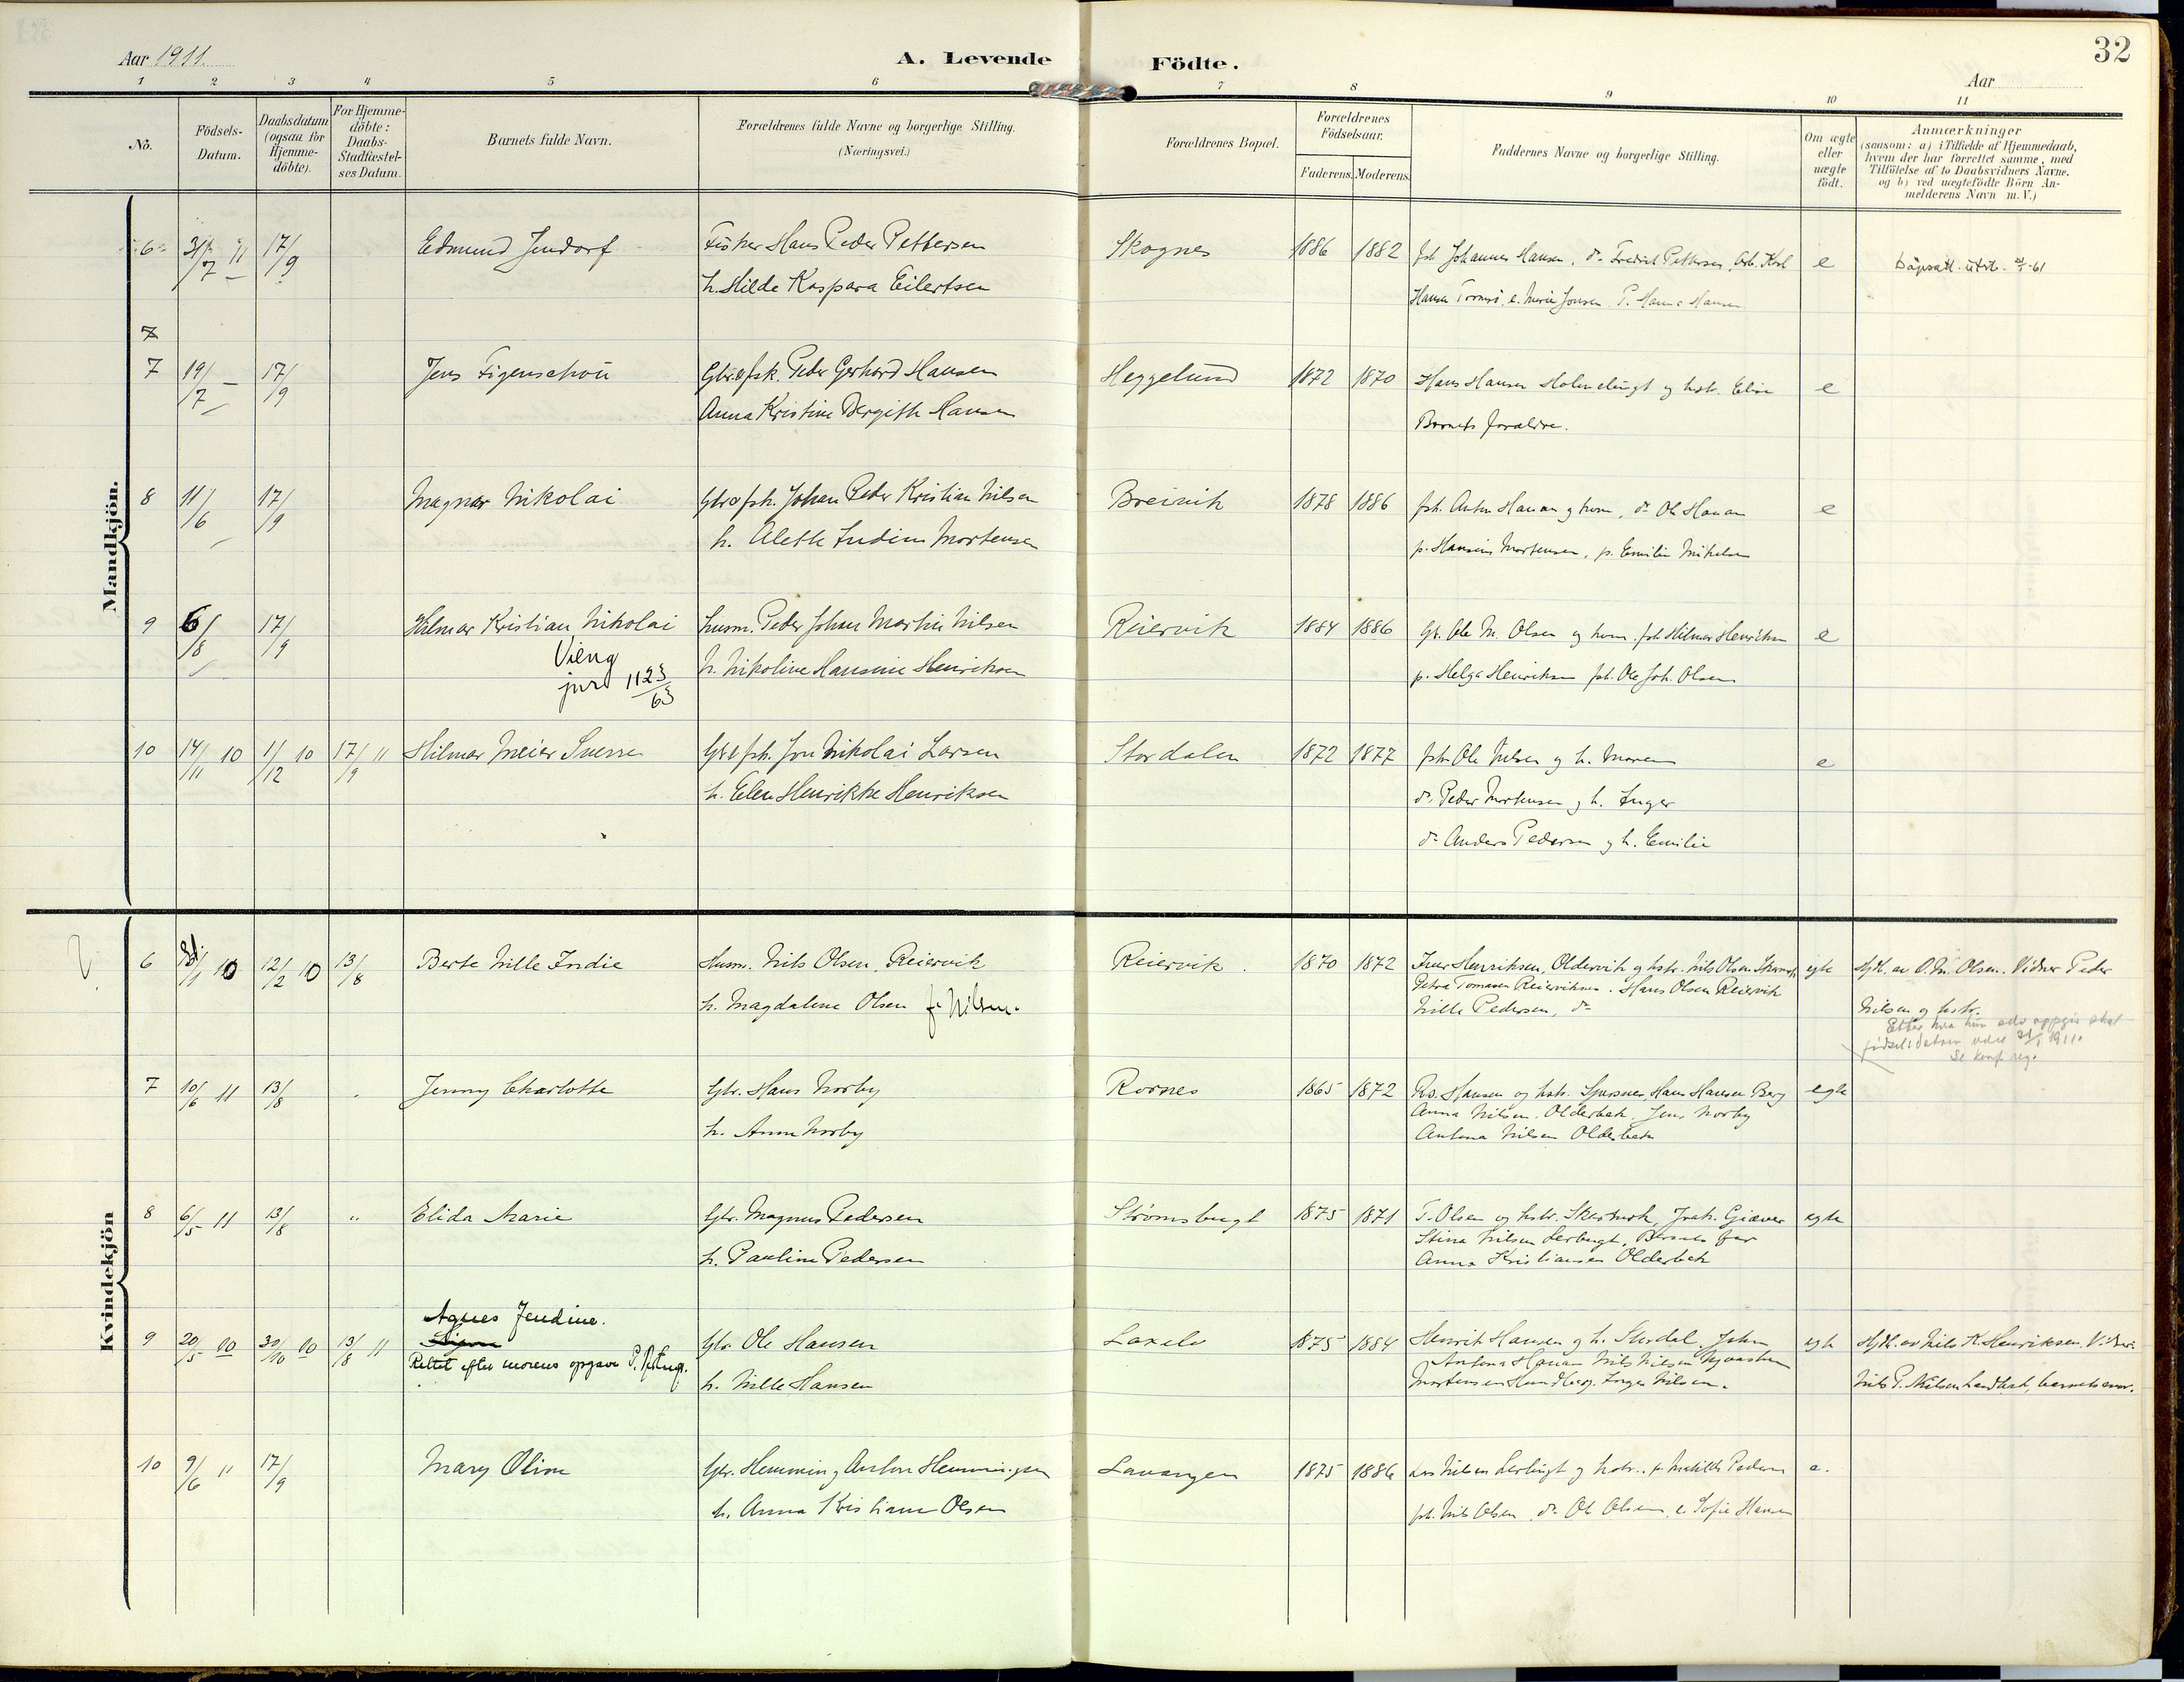 32
Aar 1911.
A. Levende Födte.
Aar
1 2 3 4 5 6 7 8 9 10 11
No.
Födsels-Datum.
Daabsdatum (ogsaa for Hjemme-döbte).
For Hjemme-döbte: Daabs-Stadfæstel-ses Datum.
Barnets fulde Navn.
Forældrenes fulde Navne og borgerlige Stilling.
(Næringsvei.)
Forældrenes Bopæl.
Forældrenes Födselsaar.
Faderens. Moderens.
Faddernes Navne og borgerlige Stilling.
Om ægte eller uægte födt.
Anmærkninger
(saasom: a) i Tilfælde af Hjemmedaab,
hvem der har forrettet samme, med
Tilföielse af to Daabsvidners Navne.
og b) ved uægtefödte Börn An-
melderens Navn m. V.)
Mandkjön.
6 17/9 Edmund Jendorf Fisker Hans Peder Pettersen Skognes 1886 1882 fsk Johannes Hansen, do Fredrik Pettersen, Arb. Karl e Dåpsatt. utst.
h. Hilde Kaspara Eilertsen Hansen Tromsø, e. Marie Jonsen P. Hanna Hansen
7
7 19/7 17/9 Jens Figenschou Gbr. o fsk. Peder Gerhard Hansen Heggelund 1872 1870 Hans Hansen Holmebugt og hstr. Elise e
Anna Kristine Bergith Hansen Barnets forældre.
8 11/6 17/9 Magnar Nikolai Gbr o fsk. Johan Peder Kristian Nilsen Breivik 1878 1886 fsk. Anton Hansen og kone, do Ole Hansen e
h. Aleth Indine Mortensen p. Hansine Mortensen, p. Emilie Mikelsen
9 6/8 17/9 Hilmar Kristian Nikolai husm. Peder Johan Martin Nilsen Reiervik 1884 1886 Gb. Ole M. Olsen og kone. fsk Hilmar Henriksen e
Vieng h. Nikoline Hansine Henriksen p. Helga Henriksen fsk. Ole Joh. Olsen
jnr 1123/63
10 14/11 10 1/12 10 17/9 11 Hilmar Meier Sverre Gbr. o fsk. Jon Nikolai Larsen Stordalen 1872 1877 fsk Ole Nilsen og h. Maren e
h. Elen Henrikke Henriksen do Peder Mortensen og h. Inger
do Anders Pedersen og h. Emilie
Kvindekjön
6 10 12/2 10 13/8 Berte Nille Indie Husm. Nils Olsen, Reiervik Reiervik 1870 1872 Iver Henriksen, Oldervik og hstr. Nils Olsen egte Hjd. av O. M. Olsen. Vidner Peder
h. Magdalene Olsen f. Nilsen. Petra Tomasen Reiervik. Hans Olsen Reiervik Nilsen og hstr.
Nille Pedersen, do Efter hva hun selv oppgir skal
fødselsdatoen være 31/1 1911.
Se konf reg.
7 10/6 11 13/8 Jenny Charlotte Gbr. Hans Norby Rornes 1865 1872 Hansen og hstr. Hans Hansen Berg egte
h. Anne Norby Anna Nilsen. Olderbek. Jens Norby
Antona Nilsen Olderbek
8 6/5 11 13/8 " Elida Marie Gbr. Magnus Pedersen Strømsbugt 1875 1871 T. Olsen og hstr. Giæver egte
h. Pauline Pedersen Stina Nilsen Lerbugt, Barnets far
Anna Kristiansen Olderbek
Agnes Jendine.
9 20/5 00 30/10 00 13/8 11 Signe Gbr. Ole Hansen Laxelv 1875 1884 Henrik Hansen og h. Stordal, John egte Hjd. av Nils K. Henriksen. Vidner:
Rettet efter morens opgave h. Nille Hansen Antona Hansen Nils Nilsen Nils P. Nielsen barnets mor.
Mortensen Hundberg. Inger Nilsen.
10 9/6 11 17/9 Mary Oline Gbr. Hemming Anton Hemmingsen Lavangen 1875 1886 Lars Nilsen Lerbugt og hstr. p. Matilde Pedersen e.
h. Anna Kristiane Olsen fsk. Nils Olsen, do Ole Olsen, e. Sofie Hansen